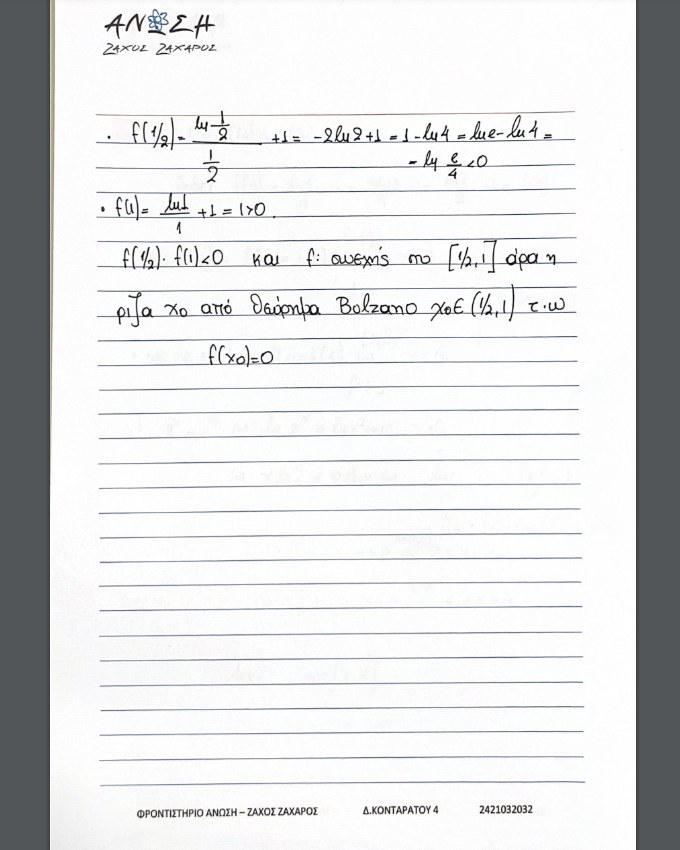 ΑΝΩΣΗ
ΖΑΧΟΣ ΖΑΧΑΡΟΣ
· f(1/2) = (ln 1/2)/(1/2) + 1 = -2ln2+1 = 1-ln4 = lne-ln4 =
= ln e/4 <0
· f(1) = ln1/1 + 1 = 1>0.
f(1/2)· f(1)<0 και f: συνεχής στο [1/2,1] άρα η
ριζα xo από θεώρημα Bolzano xo∈(1/2,1) τ.ω
f(xo)=0
ΦΡΟΝΤΙΣΤΗΡΙΟ ΑΝΩΣΗ – ΖΑΧΟΣ ΖΑΧΑΡΟΣ Δ.ΚΟΝΤΑΡΑΤΟΥ 4 2421032032